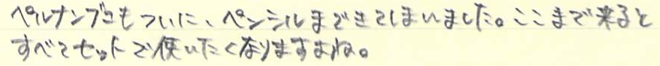 ペルナンブコもついに、ペンシルまできてしまいました。ここまで来ると
すべてセットで使いたくなりますよね。